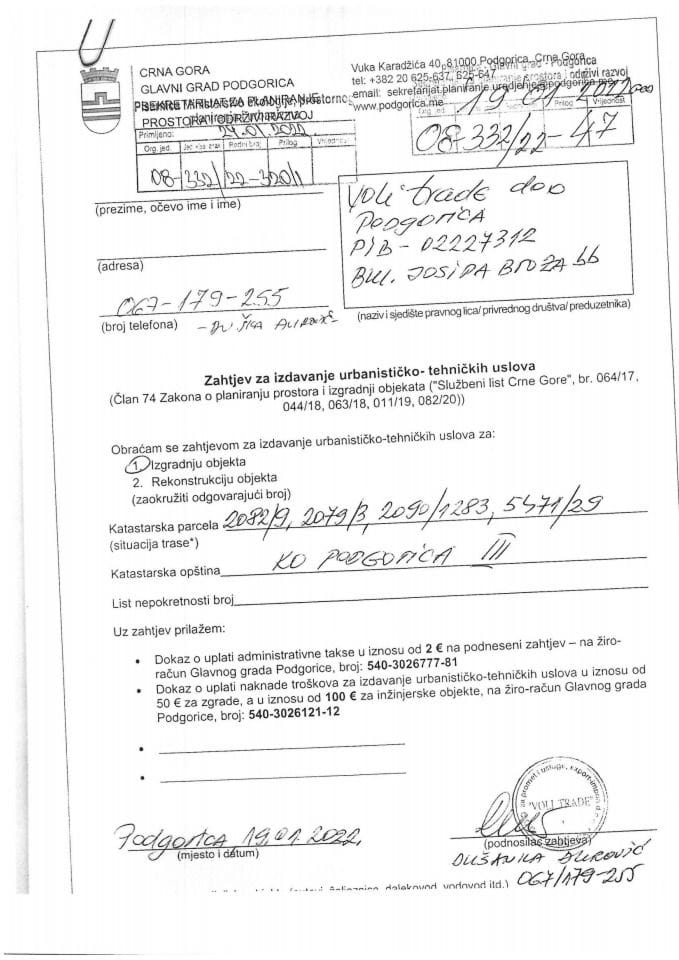 CRNA GORA
GLAVNI GRAD PODGORICA
SEKRETARIJAT ZA PLANIRANJE
PROSTORA I ODRŽIVI RAZVOJ
Vuka Karadžića 40, 81000 Podgorica, Crna Gora
tel: +382 20 625-637, 625-647
email: sekretarijat.planiranje.uredjenje@podgorica.me
www.podgorica.me
19 01 2022
Org. jed. Prilog Vrijednost
08-332/22-47
Primljeno: 24.01.2022
Org. jed. Prilog
08-332/22-320/1
(prezime, očevo ime i ime)
(adresa)
067-179-255
(broj telefona)
Voli trade doo
PODGORICA
PIB - 02227312
BUL. JOSIPA BROZA bb
(naziv i sjedište pravnog lica/ privrednog društva/ preduzetnika)
Zahtjev za izdavanje urbanističko- tehničkih uslova
(Član 74 Zakona o planiranju prostora i izgradnji objekata ("Službeni list Crne Gore", br. 064/17,
044/18, 063/18, 011/19, 082/20))
Obraćam se zahtjevom za izdavanje urbanističko-tehničkih uslova za:
1. Izgradnju objekta
2. Rekonstrukciju objekta
(zaokružiti odgovarajući broj)
Katastarska parcela 2082/9, 2079/3, 2090/1283, 5471/29
(situacija trase*)
Katastarska opština KO PODGORICA III
List nepokretnosti broj
Uz zahtjev prilažem:
• Dokaz o uplati administrativne takse u iznosu od 2 € na podneseni zahtjev – na žiro-
račun Glavnog grada Podgorice, broj: 540-3026777-81
• Dokaz o uplati naknade troškova za izdavanje urbanističko-tehničkih uslova u iznosu od
50 € za zgrade, a u iznosu od 100 € za inžinjerske objekte, na žiro-račun Glavnog grada
Podgorice, broj: 540-3026121-12
•
•
"VOLI TRADE"
Podgorica, 19.01.2022.
(mjesto i datum)
(podnosilac zahtjeva)
DUŠANKA ĐUROVIĆ
067/179-255
dalekovod, vodovod itd.)